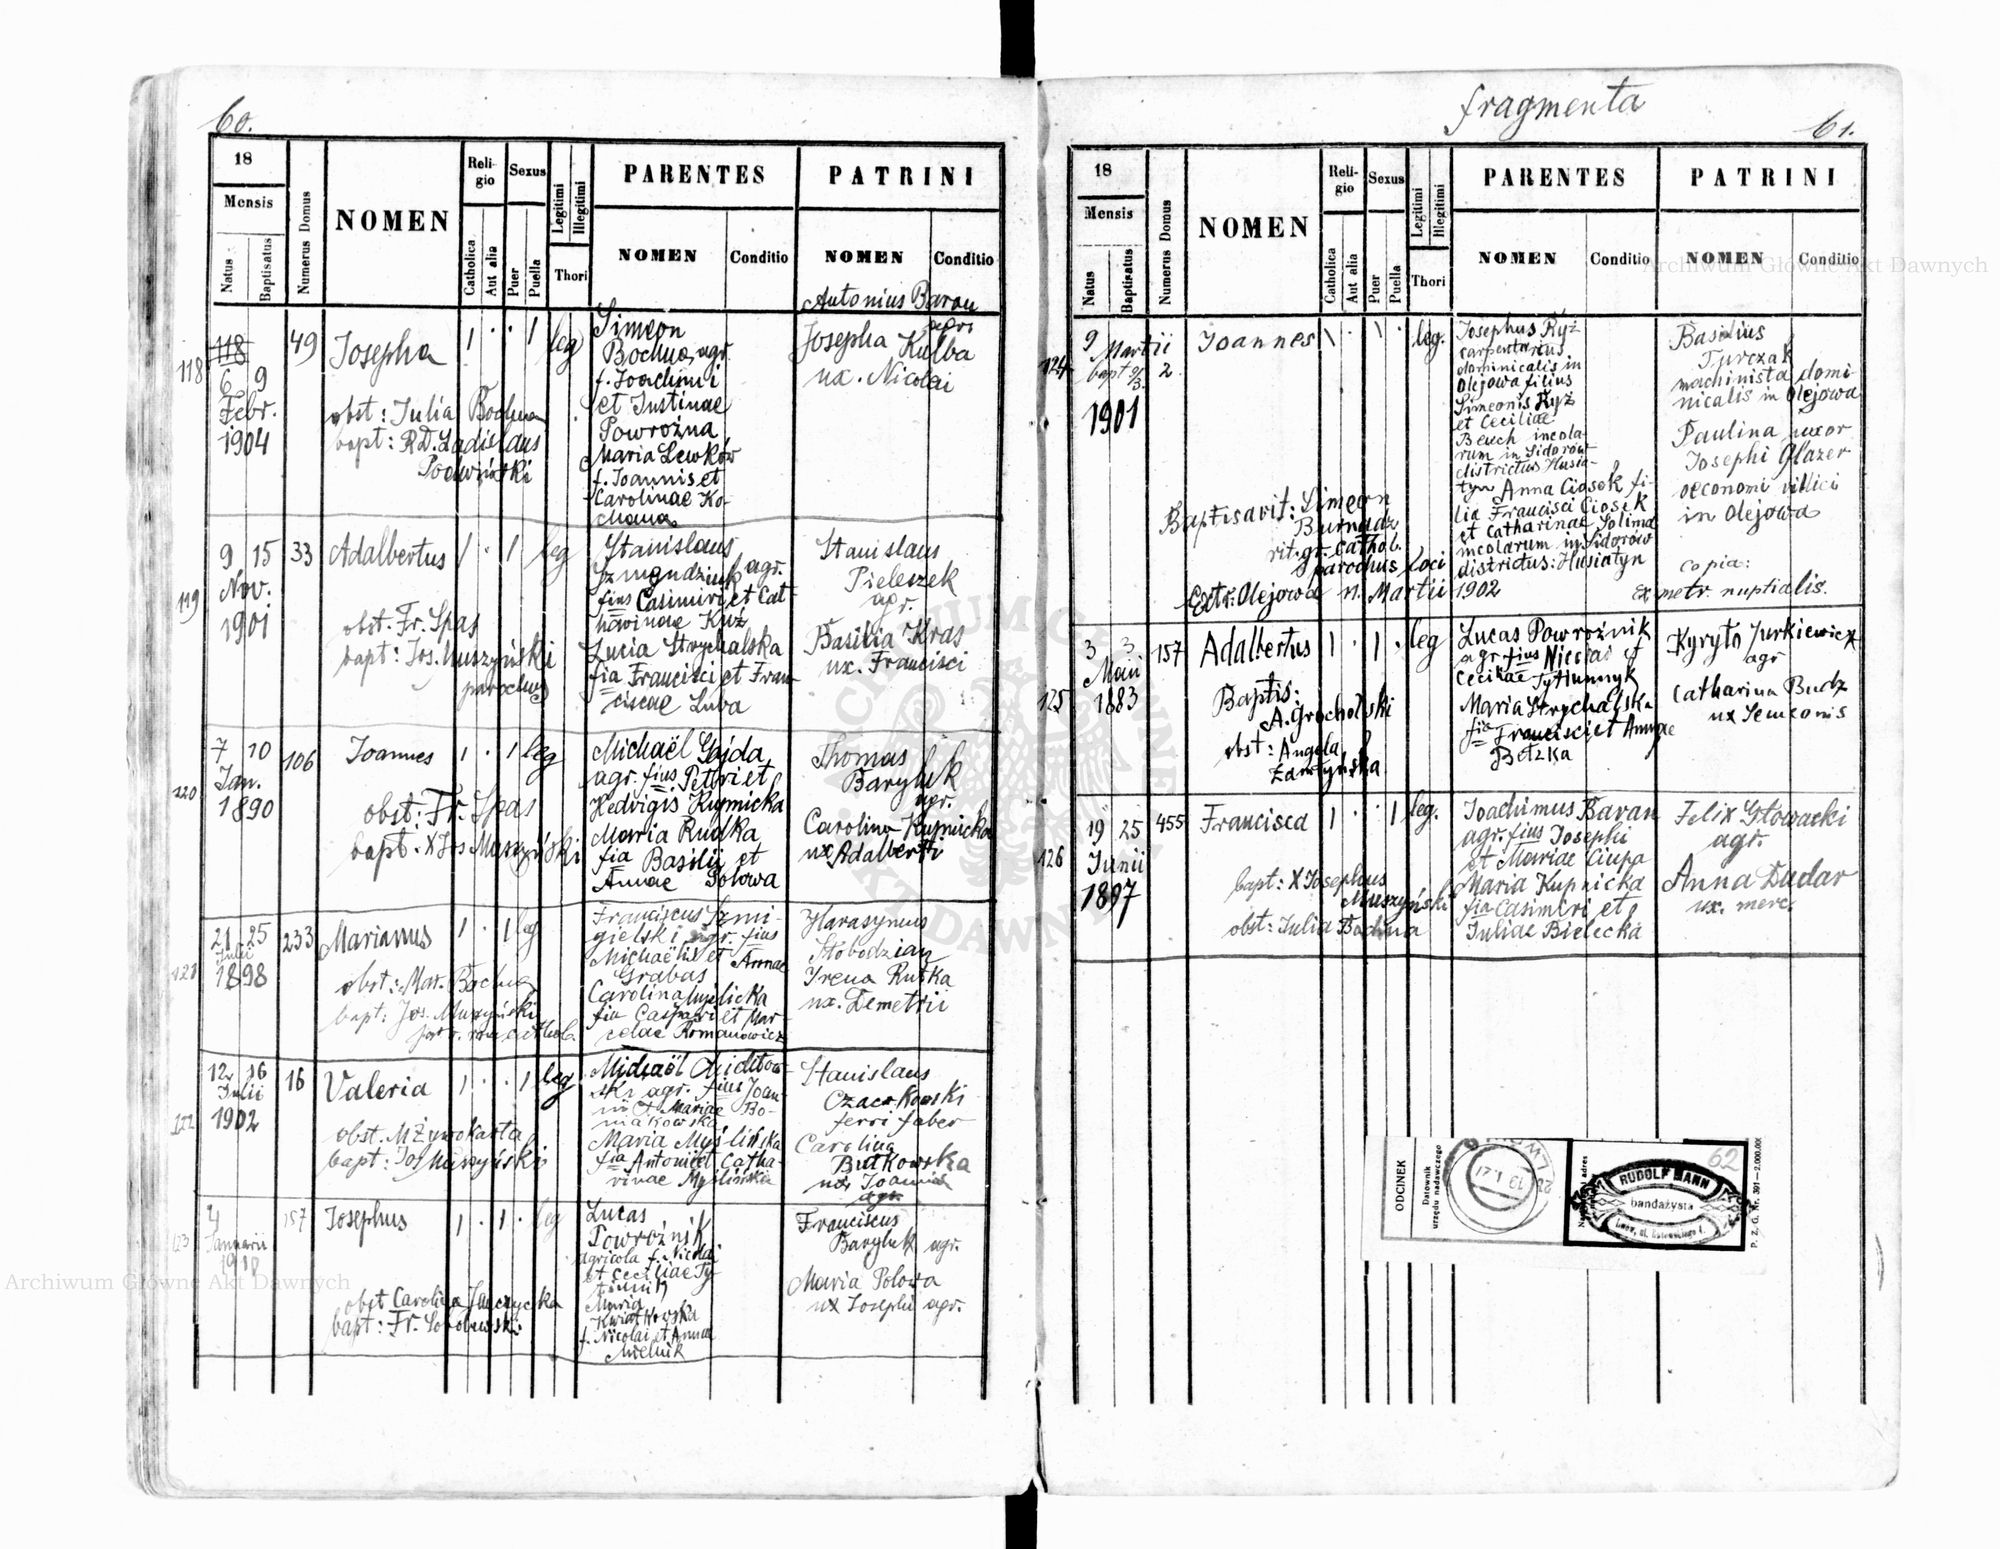 60.
18
Mensis
Natus
Baptisatus
Numerus Domus
NOMEN
Religio
Catholica
Aut alia
Sexus
Puer
Puella
Legitimi
Illegitimi
Thori
PARENTES
NOMEN
Conditio
PATRINI
NOMEN
Conditio
118
118
6 9
Febr.
1904
49
Josepha
1 . . 1 leg
obst: Julia Bochna
bapt: R.D. Ladislaus
Simeon
Bochna, agr.
f. Joachimi
et Justinae
Powroźna
Maria Lewków
f. Joannis et
Carolinae Ko-
chana
Antonius Baran
agr.
Josepha Kulba
ux. Nicolai
119
9 15
Nov.
1901
33
Adalbertus
1 . 1 leg
obst. Fr. Spas
bapt: Jos. Muszyński
parochus
Stanislaus
agr.
fius Casimiri et Cat-
Lucia Strychalska
fia Francisci et Fran-
ciscae Luba
Stanislaus
Pieleszek
agr.
Basilia Kras
ux. Francisci
120
7 10
Jan.
1890
106
Joannes
1 . 1 leg
obst: Fr. Spas
bapt: X Jos Muszyński
Michaël Gajda
agr. fius Petri et
Hedvigis Kupnicka
Maria Rudka
fia Basilii et
Annae Polowa
Thomas
Baryluk
agr.
Carolina Kupnicka
ux Adalberti
121
21 25
Julii
1898
233
Marianus
1 . 1 leg
obst: Mar. Bochna
bapt: Jos. Muszyński
Franciscus Szmi-
gielski agr. fius
Michaëlis et Annae
Grabas
Carolina
fia Caspari et Mar-
celae Romanowicz
Harasymus
Słobodzian
Irena Rutka
ux. Demetrii
122
12 16
Julii
1902
16
Valeria
1 . . 1 leg
obst. M Żywokarta
bapt: Jos Muszyński
Michaël
ski agr. fius Joan-
nis et Mariae Bo-
niakowska
Maria Myślińska
fia Antonii et Catha-
rinae Myślińska
Stanislaus
Czaczkowski
ferri faber
Carolina
Butkowska
ux Joannis
agr.
123
4
Januarii
157
Josephus
1 . 1 . leg
obst Carolina
bapt: Fr.
Lucas
Powroźnik
agricola f. Nicolai
et Ceciliae Ty-
Maria
Kwiatkowska
f. Nicolai et Annae
Mielnik
Franciscus
Baryluk agr.
Maria Polowa
ux Josephi agr.
fragmenta
61.
18
Mensis
Natus
Baptisatus
Numerus Domus
NOMEN
Religio
Catholica
Aut alia
Sexus
Puer
Puella
Legitimi
Illegitimi
Thori
PARENTES
NOMEN
Conditio
PATRINI
NOMEN
Conditio
124
9
Martii
bapt 9/3.
1901
2.
Joannes
leg.
Baptisavit: Simeon
rit. gr. cathol.
parochus loci
Extr: Olejowa
Martii 1902
Josephus Ryż
carpentarius
dominicalis in
Olejowa filius
Simeonis Ryż
et Ceciliae
Bench incola-
rum in Sidorów
districtus Husia-
tyn Anna Ciosek fi-
lia Francisci Ciosek
et Catharinae Solima
incolarum in Sidorów
districtus: Husiatyn
Basilius
Turczak
machinista domi-
nicalis in Olejowa
Paulina uxor
Josephi Glazer
oeconomi villici
in Olejowa
copia:
ex metr. nuptialis.
125
3 3
Maii
1883
157
Adalbertus
1 . 1 . leg
Baptis:
A. Grocholski
obst: Angela
Lucas Powroźnik
agr. fius Nicolai et
Ceciliae Tytlumnyk
Maria Strychalska
fia Francisci et Annae
Betzka
Kyryło Jurkiewicz
agr
Catharina Budz
ux Semeonis
126
19 25
Junii
1897
455
Francisca
1 . . 1 leg.
bapt: X Josephus
Muszyński
obst: Julia Bochna
Joachimus Baran
agr. fius Josephi
et Mariae Ciupa
Maria Kupnicka
fia Casimiri et
Juliae Bielecka
Felix Głowacki
agr.
Anna Dudar
ux. merc.
ODCINEK
Datownik
urzędu nadawczego
62
RUDOLF MANN
bandażysta
P. Z. G. Nr. 391—2.000.000
ARCHIWUM GŁÓWNE AKT DAWNYCH
Archiwum Główne Akt Dawnych
Archiwum Główne Akt Dawnych